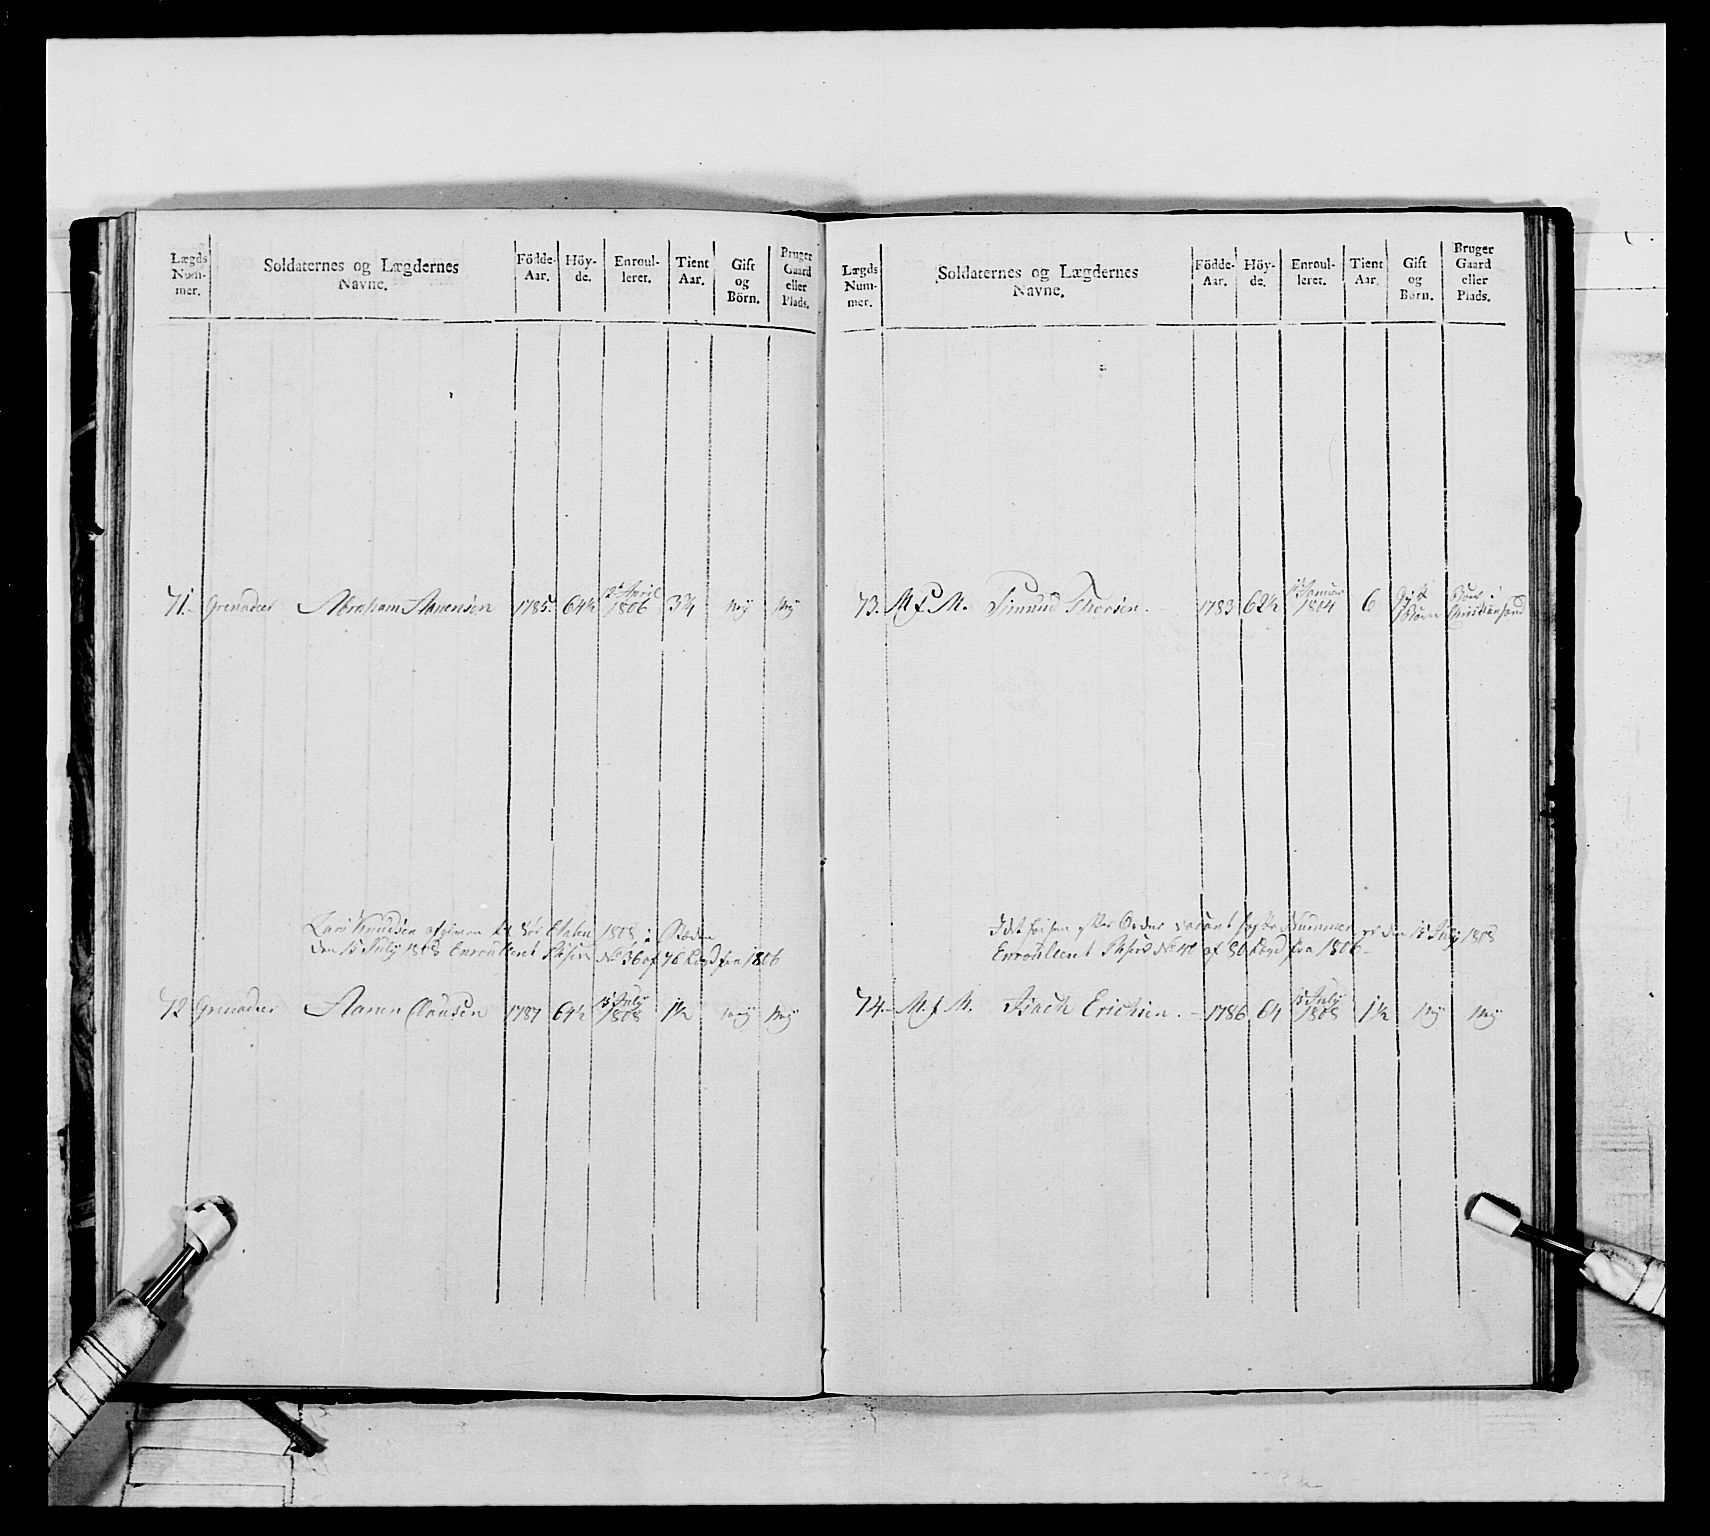 Lægds Num- mer.
Soldaternes og Lægdernes Navne.
Födde- Aar.
Höy- de.
Enroul- leret.
Tient Aar.
Gift og Börn.
Bruger Gaard eller Plads.
71. Grenadeer Abraham Aanensen 1785. 64½ 12te April 1806 3¾ Nej Nej
Lars Knudsen
den 15 July 1808 Enroulleret No 36 af 76 Lægd fra 1806
72 Grenadeer Aanen Clausen 1787 64½ 15 July 1808 1½ Nej Nej
Lægds Num- mer.
Soldaternes og Lægdernes Navne.
Födde- Aar.
Höy- de.
Enroul- leret.
Tient Aar.
Gift og Börn.
Bruger Gaard eller Plads.
73. M. f. M. Simund Thorsen. 1783 62½ Januar 1804 6 Gift Börn Christiansand
efter Order vacant Nummer den 15 July 1808
Enroulleret No af 80 Lægd fra 1806
74. M. f. M. Erichsen. 1786 64 15 July 1808 1½ Nej Nej